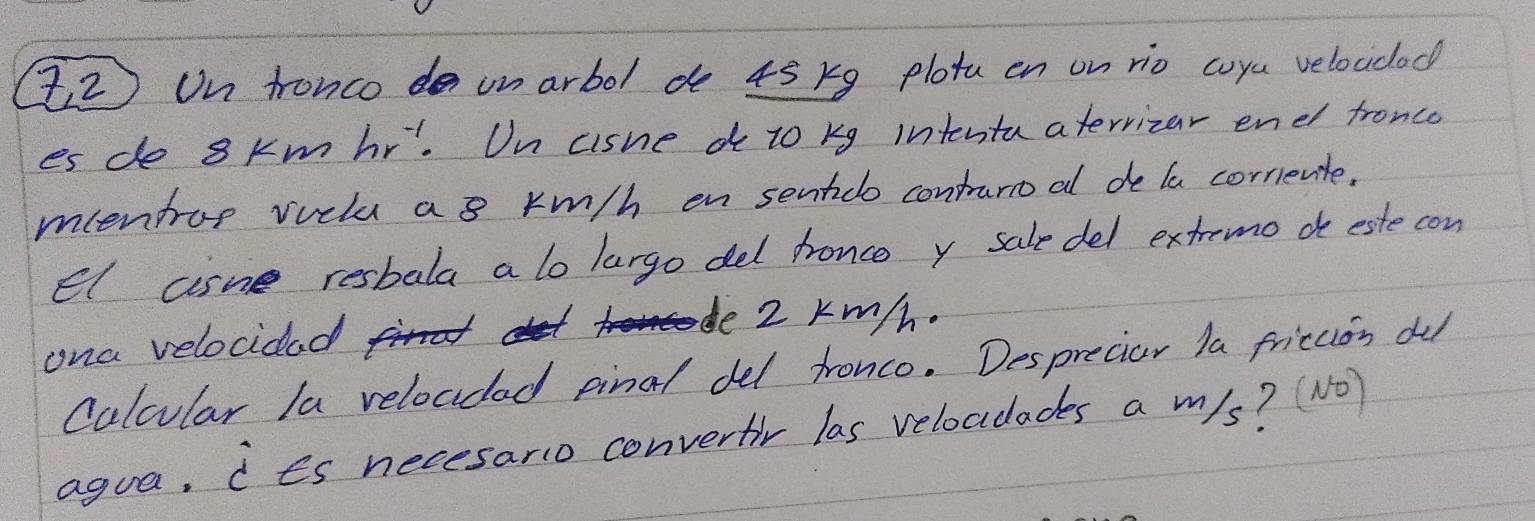 7.2) Un tronco de un arbol de 45 Kg flota en un rio cuya velocidad
es de 8 Km hr⁻¹. Un cisne de 10 Kg intenta aterrizar en el tronco
mientras vuela a 8 Km/h en sentido contrario al de la corriente.
El cisne resbala a lo largo del tronco y sale del extremo de este con
una velocidad final del tronco de 2 Km/h.
Calcular la velocidad final del tronco. Despreciar la fricción del
agua. ¿ Es necesario convertir las velocidades a m/s? (NO)